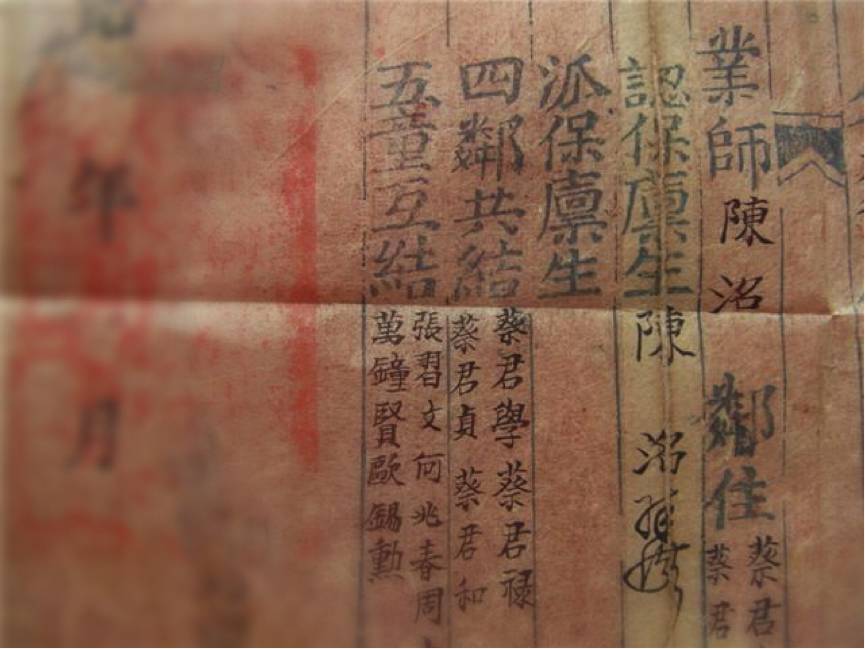 業師陳洺
鄰住
蔡君
蔡君
認保廪生陳洺
派保廪生
四鄰共結
蔡君學蔡君禄
蔡君貞蔡君和
五童互結
張習文何兆春周
萬鐘賢歐錫勲
年月